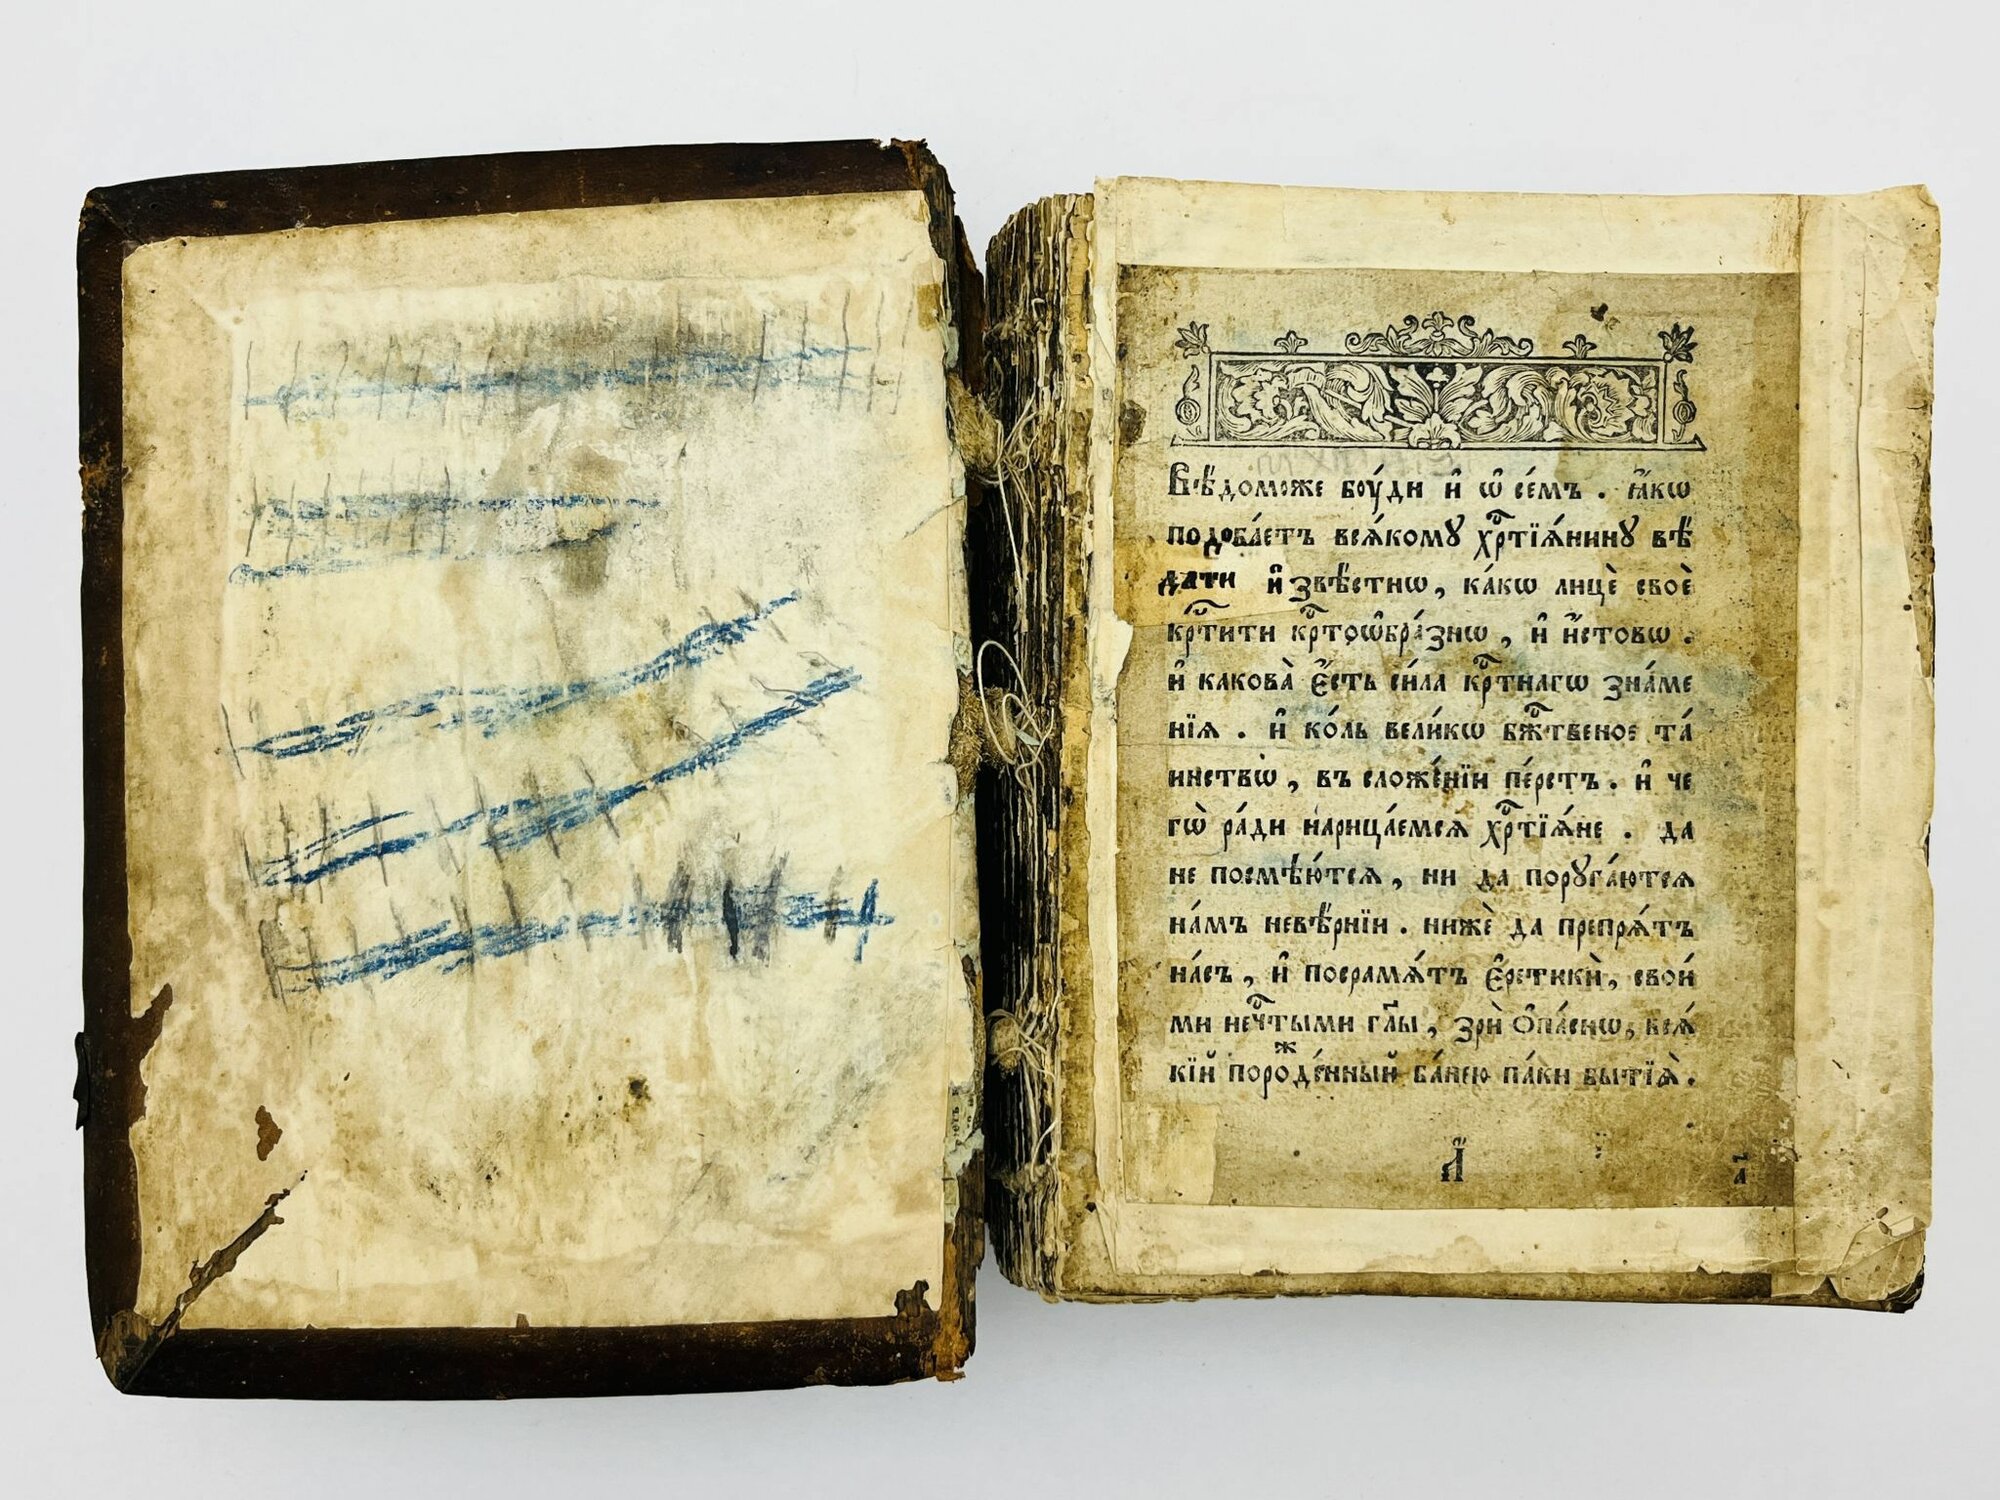 Вѣ́доможе бо́уди и҆ ѡ҆ се́мъ . ꙗ҆́кѡ
подоба́етъ всѧ́кому хрⷭ҇тїѧ́нинꙋ вѣ́
дати и҆звѣ́стнѡ , ка́кѡ лицѐ своѐ
крⷭ҇тити крⷭ҇тоѡбра́знѡ , и҆ и҆́стовѡ .
и҆ какова̀ є҆́сть си́ла крⷭ҇тнагѡ зна́ме
нїѧ . и҆ ко́ль вели́кѡ бжⷭ҇твеное та́
инствѡ , въ сложе́нїи пе́рстъ . и҆ че
гѡ̀ ра́ди нарица́емсѧ хрⷭ҇тїѧ́не . да
не посмѣю́тсѧ , ни да порꙋга́ютсѧ
на́мъ невѣ́рнїи . нижѐ да препрѧ́тъ
на́съ , и҆ посрамѧ́тъ є҆ретикѝ , свои́
ми нечⷭ҇тыми гл҃ы , зрѝ ѻ҆па́снѡ , всѧ́
кїй пороⷤде́нный ба́нею па́ки бытїѧ̀ .
а҃